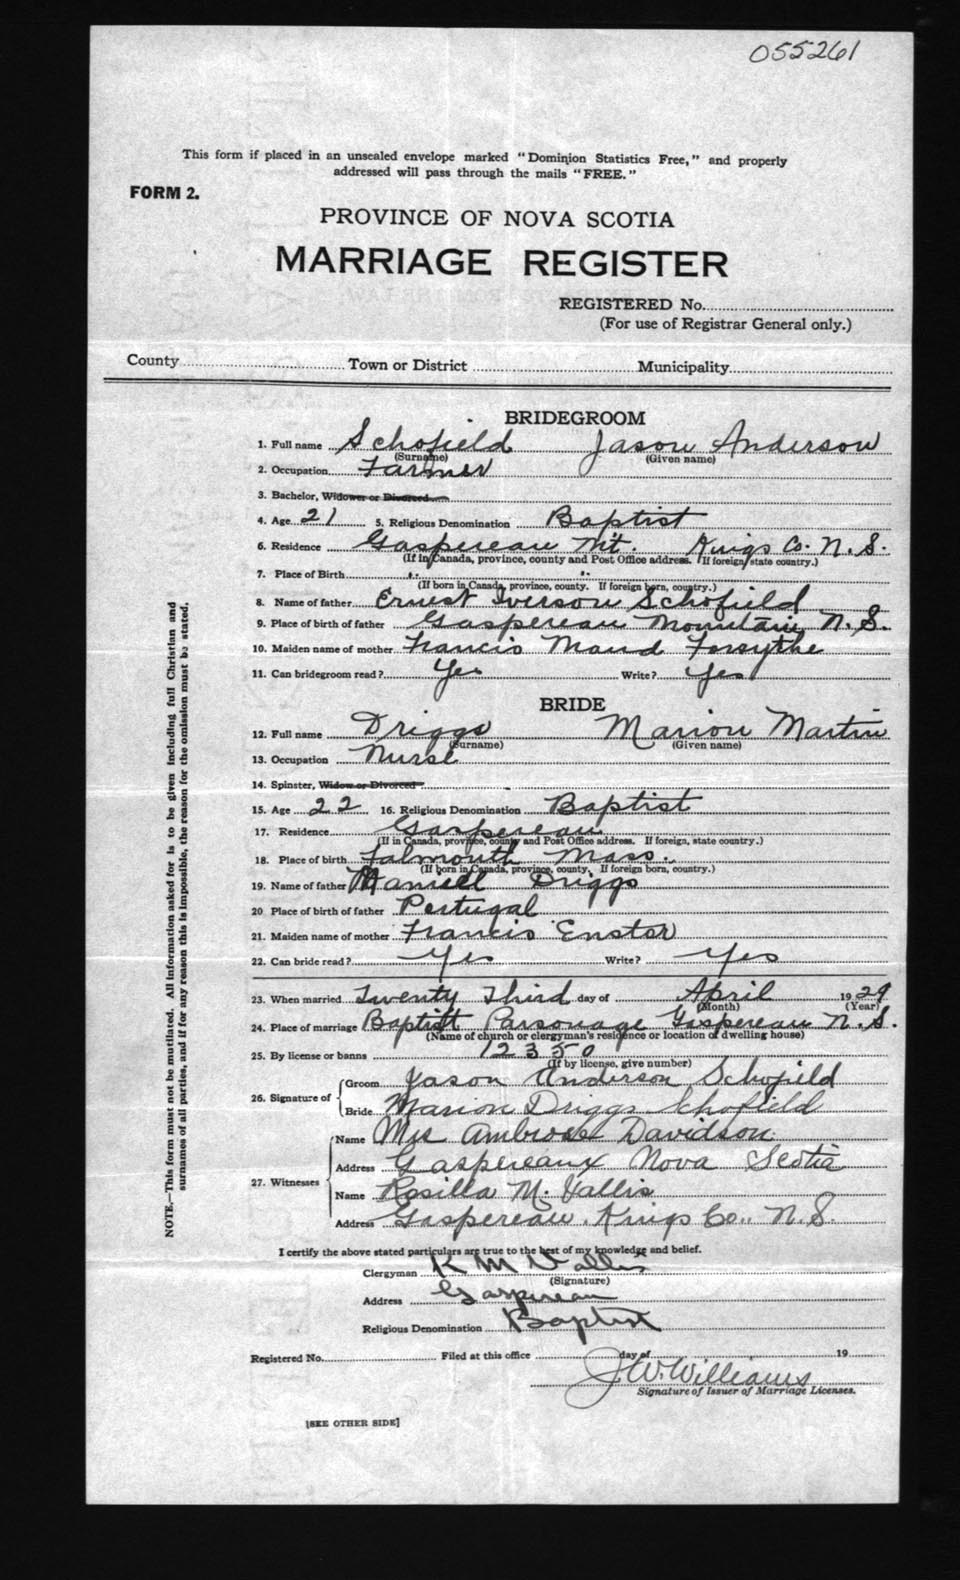 055261
This form if placed in an unsealed envelope marked "Dominion Statistics Free," and properly
addressed will pass through the mails "FREE."
FORM 2.
PROVINCE OF NOVA SCOTIA
MARRIAGE REGISTER
REGISTERED No.
(For use of Registrar General only.)
County Town or District Municipality
BRIDEGROOM
1. Full name Schofield Jason Anderson
(Surname) (Given name)
2. Occupation Farmer
3. Bachelor, Widower or Divorced
4. Age 21 5. Religious Denomination Baptist
6. Residence Gaspereau Mt. Kings Co. N.S.
(If in Canada, province, county and Post Office address. If foreign, state country.)
7. Place of Birth " "
(If born in Canada, province, county. If foreign born, country.)
8. Name of father Ernest Iverson Schofield
9. Place of birth of father Gaspereau Mountain N.S.
10. Maiden name of mother Francis Maud Forsythe
11. Can bridegroom read? Yes Write? Yes
BRIDE
12. Full name Driggs Marion Martin
(Surname) (Given name)
13. Occupation Nurse
14. Spinster, Widow or Divorced
15. Age 22 16. Religious Denomination Baptist
17. Residence Gaspereau
(If in Canada, province, county and Post Office address. If foreign, state country.)
18. Place of birth Falmouth Mass.
(If born in Canada, province, county. If foreign born, country.)
19. Name of father Manuel Driggs
20 Place of birth of father Portugal
21. Maiden name of mother Francis Enstor
22. Can bride read? Yes Write? Yes
23. When married Twenty Third day of April 1929
(Month) (Year)
24. Place of marriage Baptist Parsonage Gaspereau N.S.
(Name of church or clergyman's residence or location of dwelling house)
25. By license or banns 12350
(If by license, give number)
26. Signature of Groom Jason Anderson Schofield
Bride Marion Driggs Schofield
27. Witnesses Name Mrs Ambrose Davidson
Address Gaspereaux Nova Scotia
Name Rosilla M. Vallis
Address Gaspereau, Kings Co., N.S.
I certify the above stated particulars are true to the best of my knowledge and belief.
Clergyman K M Vallis
(Signature)
Address Gaspereau
Religious Denomination Baptist
Registered No. Filed at this office day of 19
J. W. Williams
Signature of Issuer of Marriage Licenses.
[SEE OTHER SIDE]
NOTE.—This form must not be mutilated. All information asked for is to be given including full Christian and
surnames of all parties, and if for any reason this is impossible, the reason for the omission must be stated.